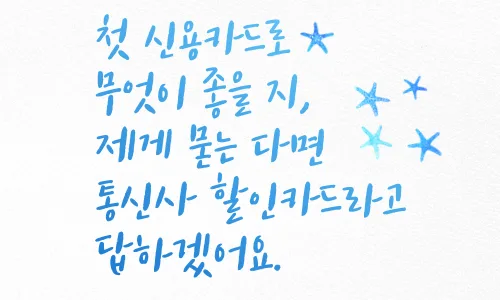 첫 신용카드로
무엇이 좋을 지,
제게 묻는 다면
통신사 할인카드라고
답하겠어요.